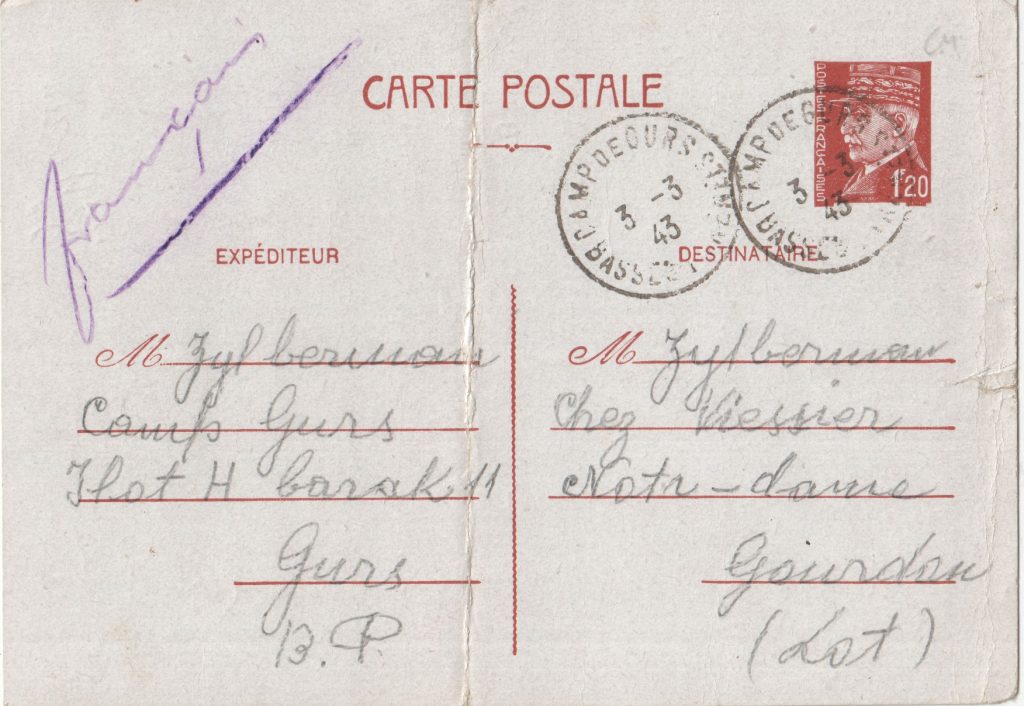 CM
français
I
CARTE POSTALE
POSTES FRANÇAISES
1F20
CAMP DE GURS
3 -3
43
BASSES
CAMP DE GURS
3 -3
43
BASSES
EXPÉDITEUR
DESTINATAIRE
M Zylberman
Camp Gurs
Ilot H barak 11
Gurs
B.P
M Zylberman
Chez
Notr-dame
Gourdon
(Lot)